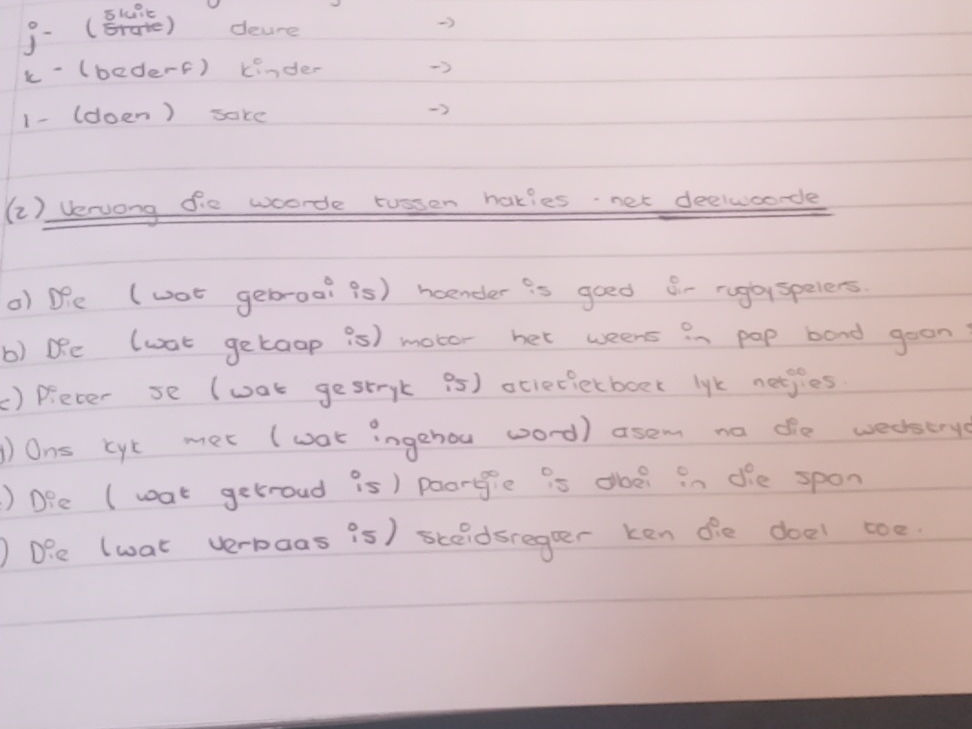 j- (sluit) deure ->
k - (bederf) kinder ->
l- (doen) sake ->
(2) Vervang die woorde tussen hakies - net deelwoorde
a) Die (wat gebraai is) hoender is goed vir rugbyspelers.
b) Die (wat gekaap is) motor het weens 'n pap band gaan
c) Pieter se (wat gestryk is) atletiekbaek lyk netjies.
) Ons kyk met (wat ingehou word) asem na die wedstryd
) Die (wat getroud is) paartjie is albei in die span
) Die (wat verbaas is) skeidsregter ken die doel toe.